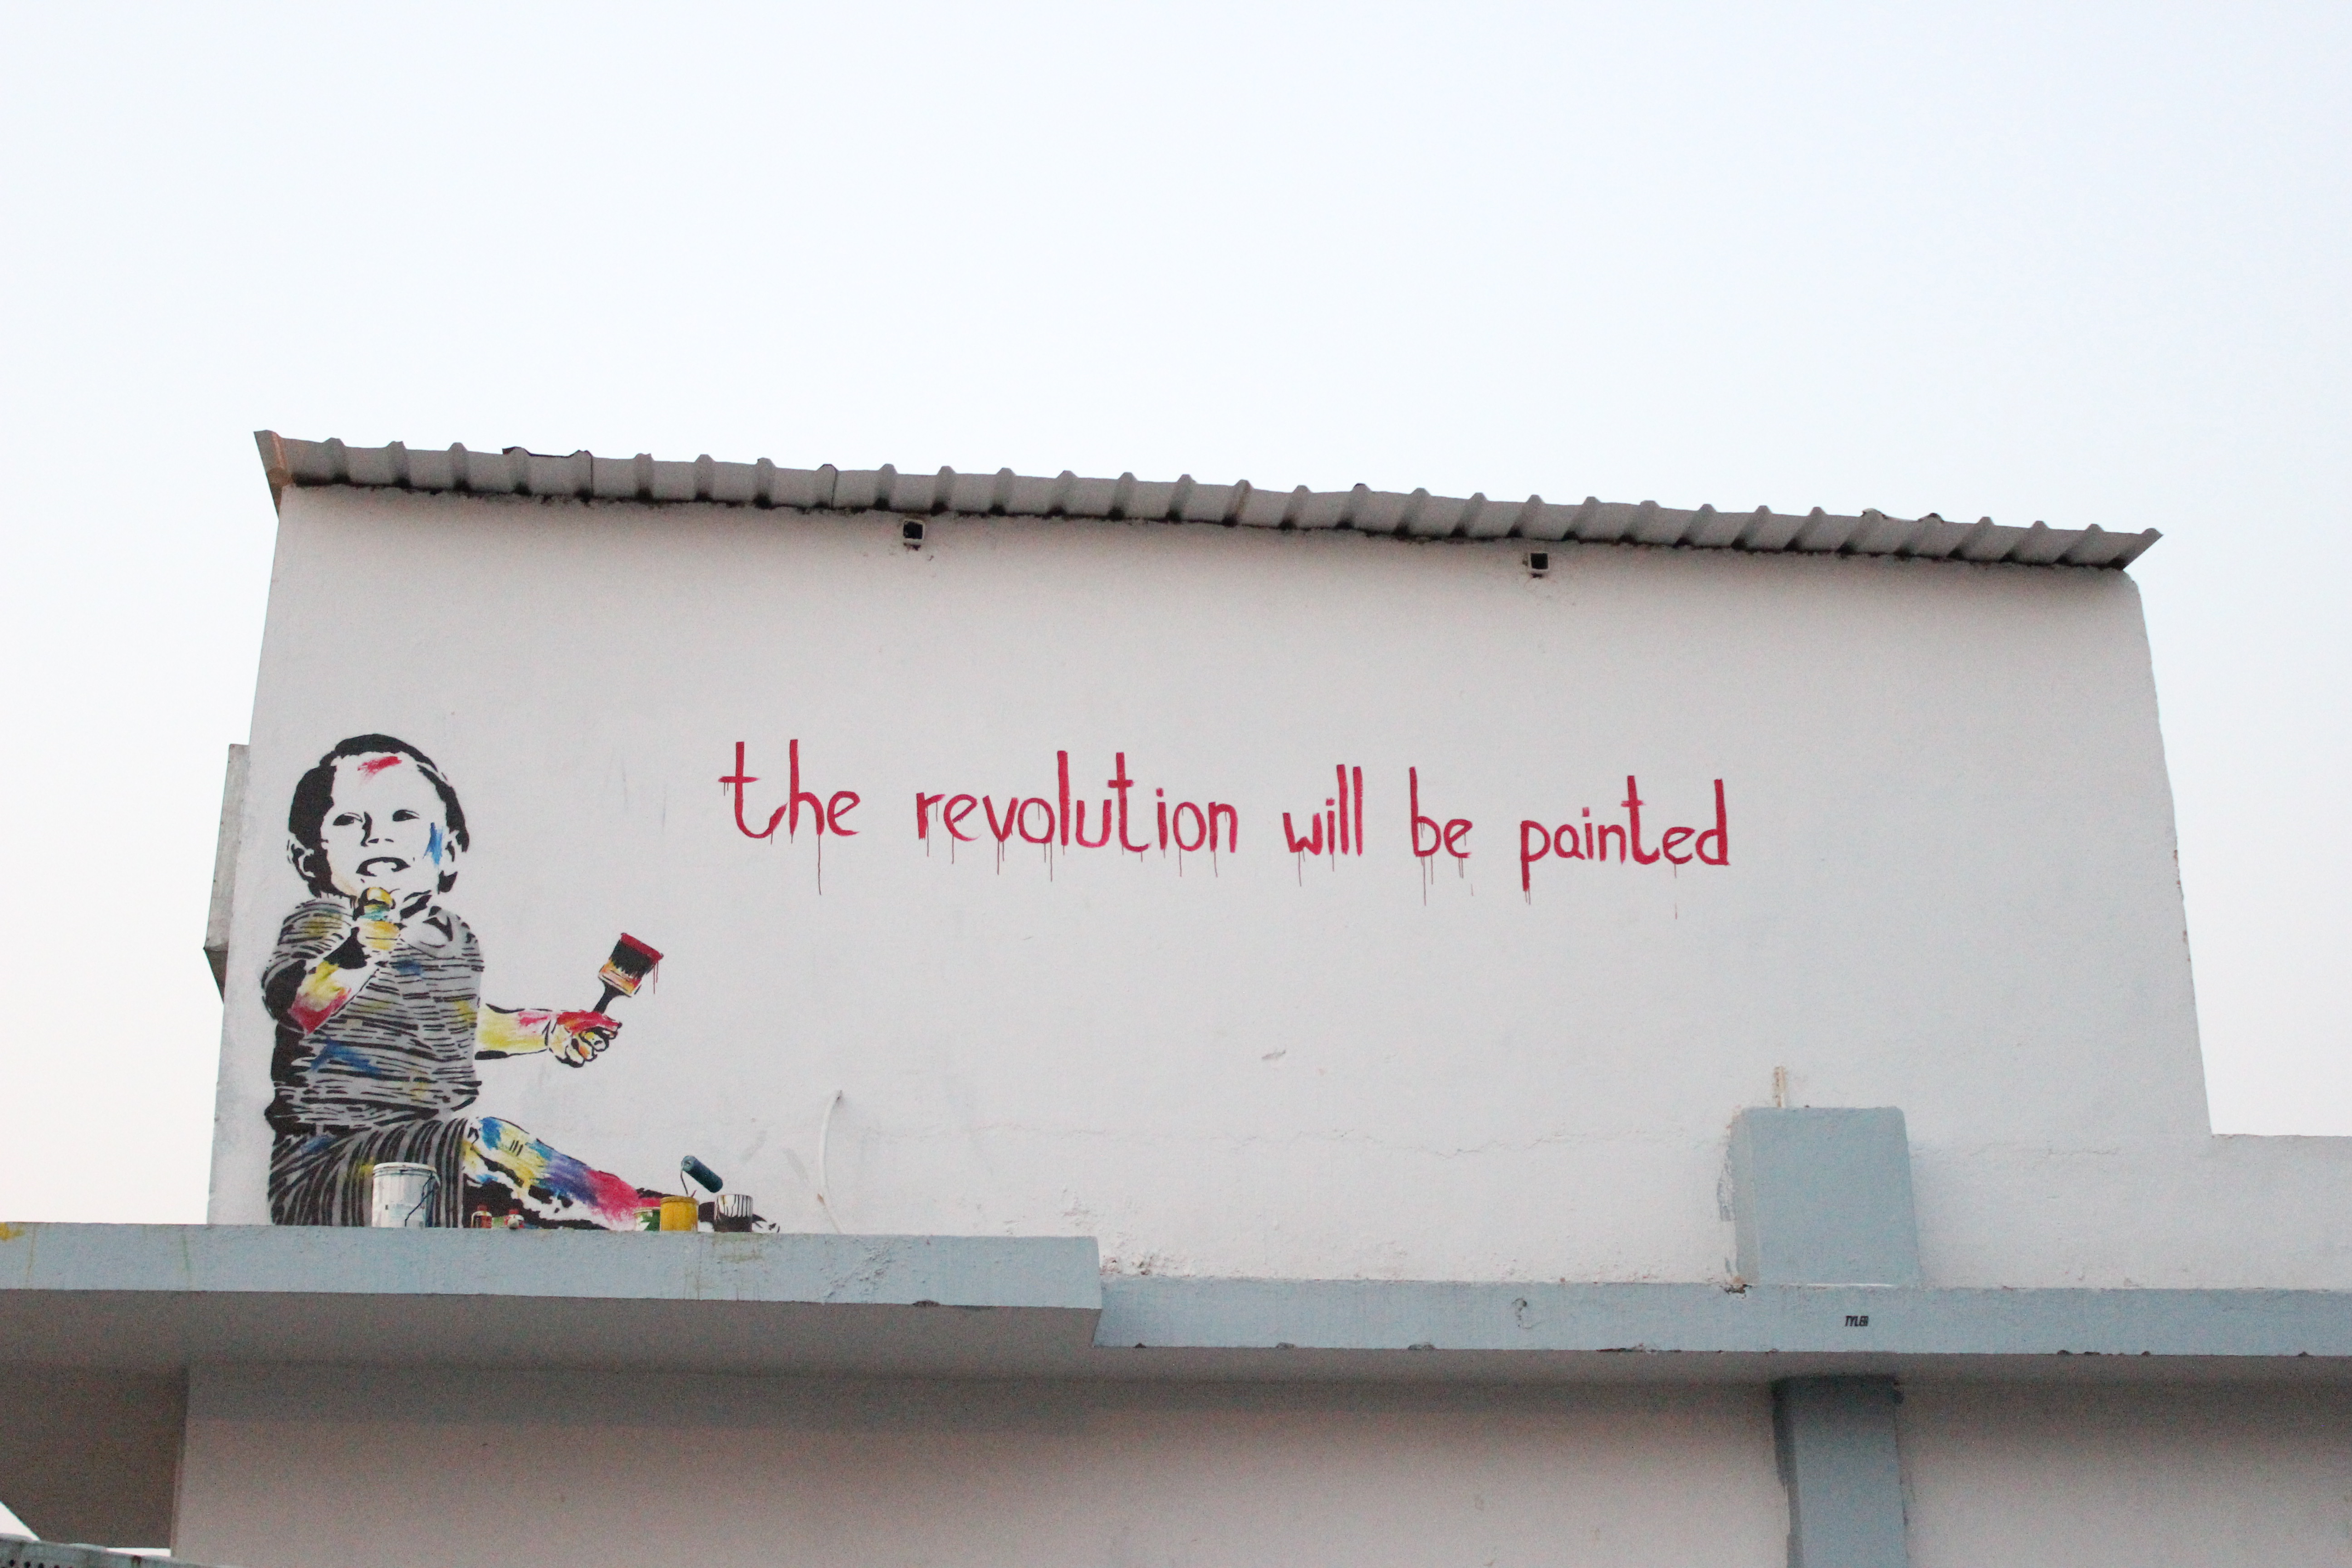 the revolution will be painted
TYLER